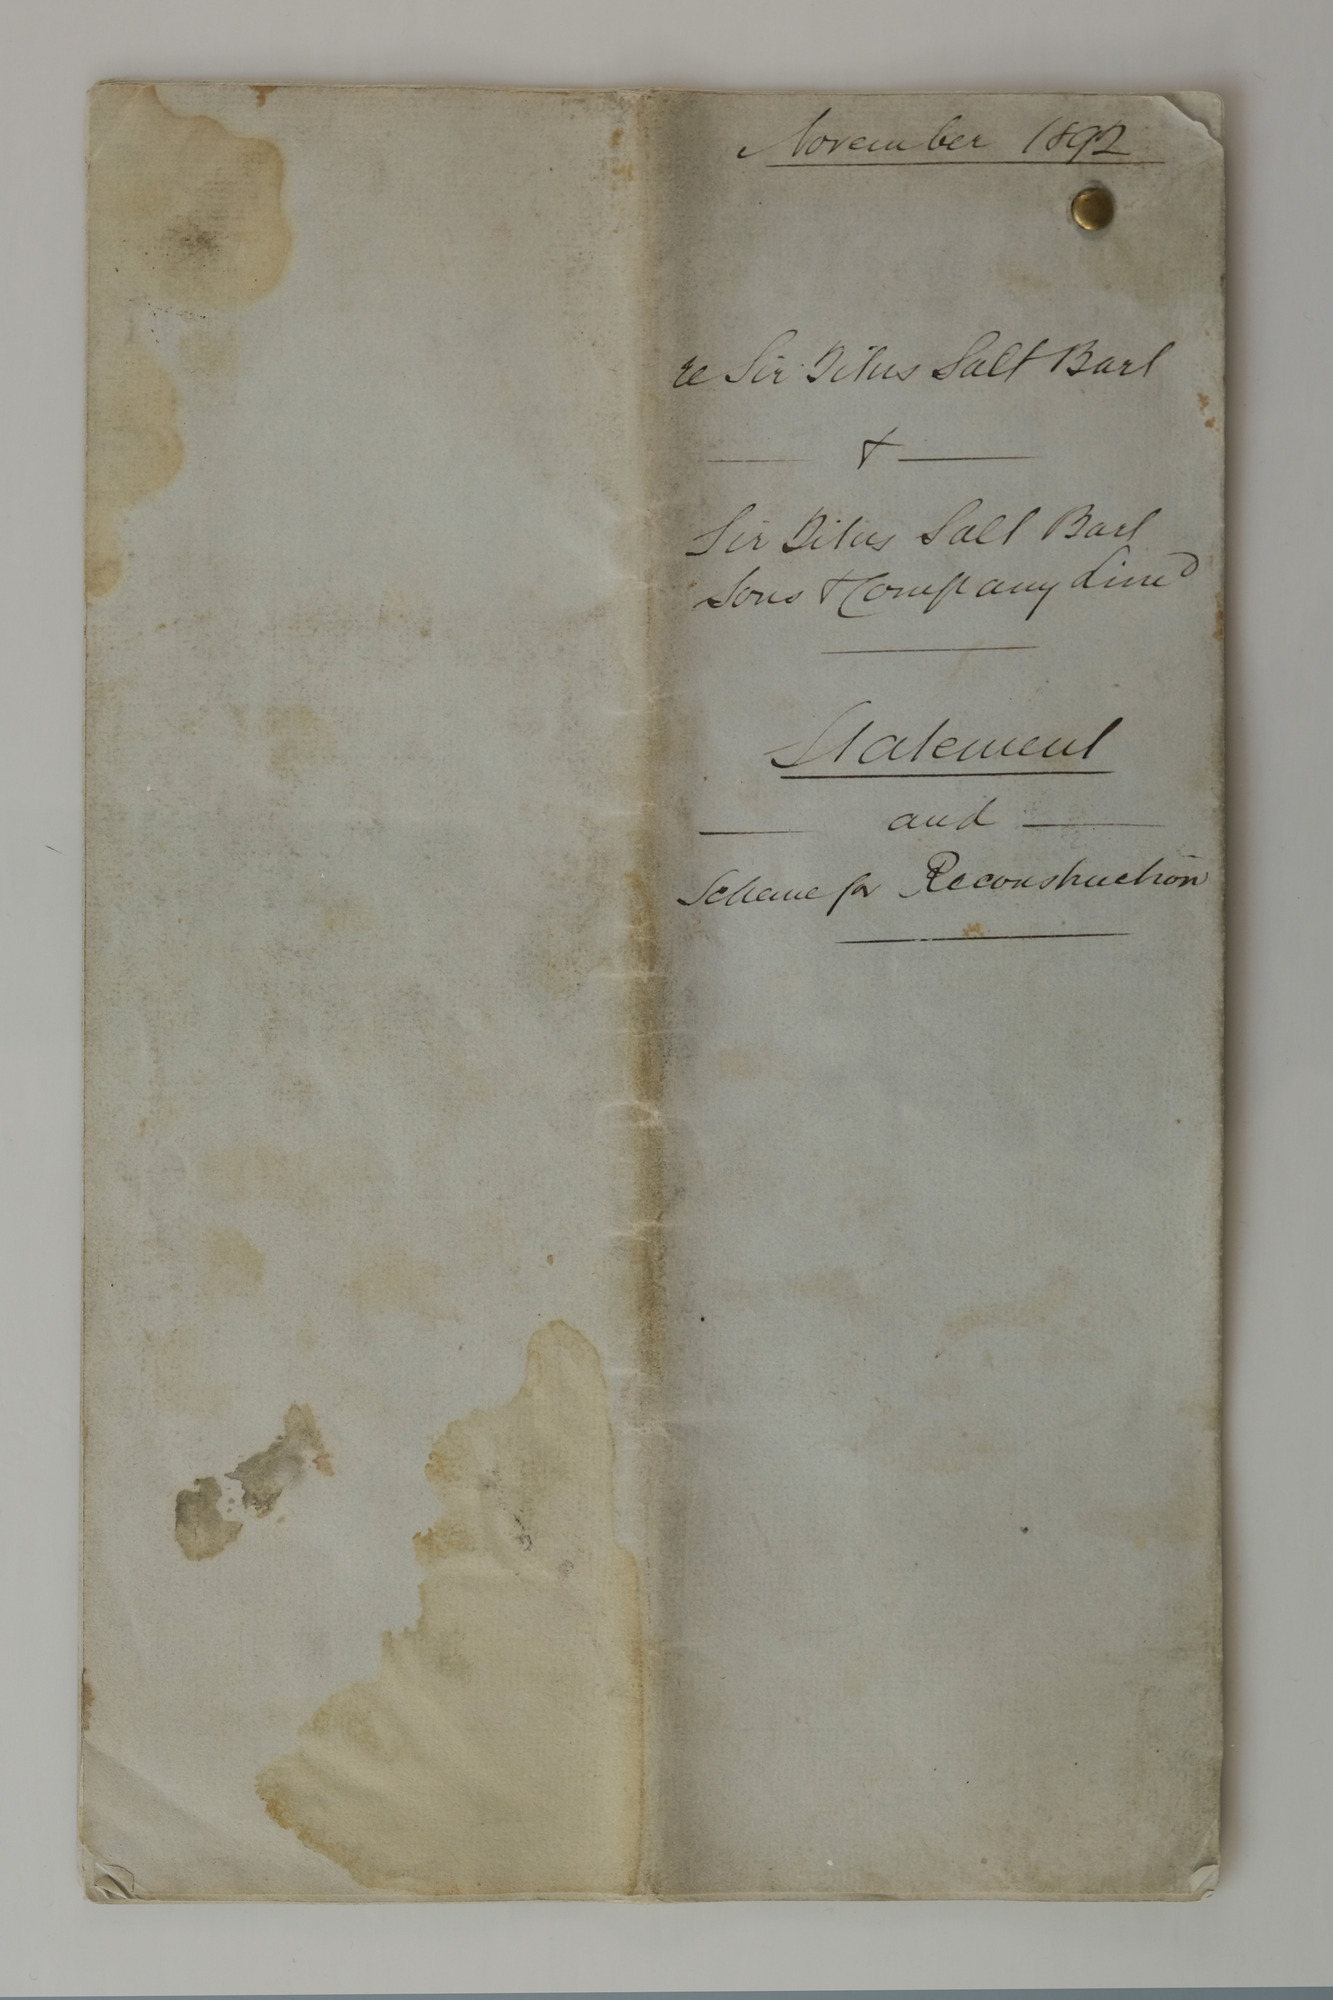 November 1892
re Sir Titus Salt Bart
&
Sir Titus Salt Bart
Sons & Company Lim^d
Statement
and
Scheme for Reconstruction